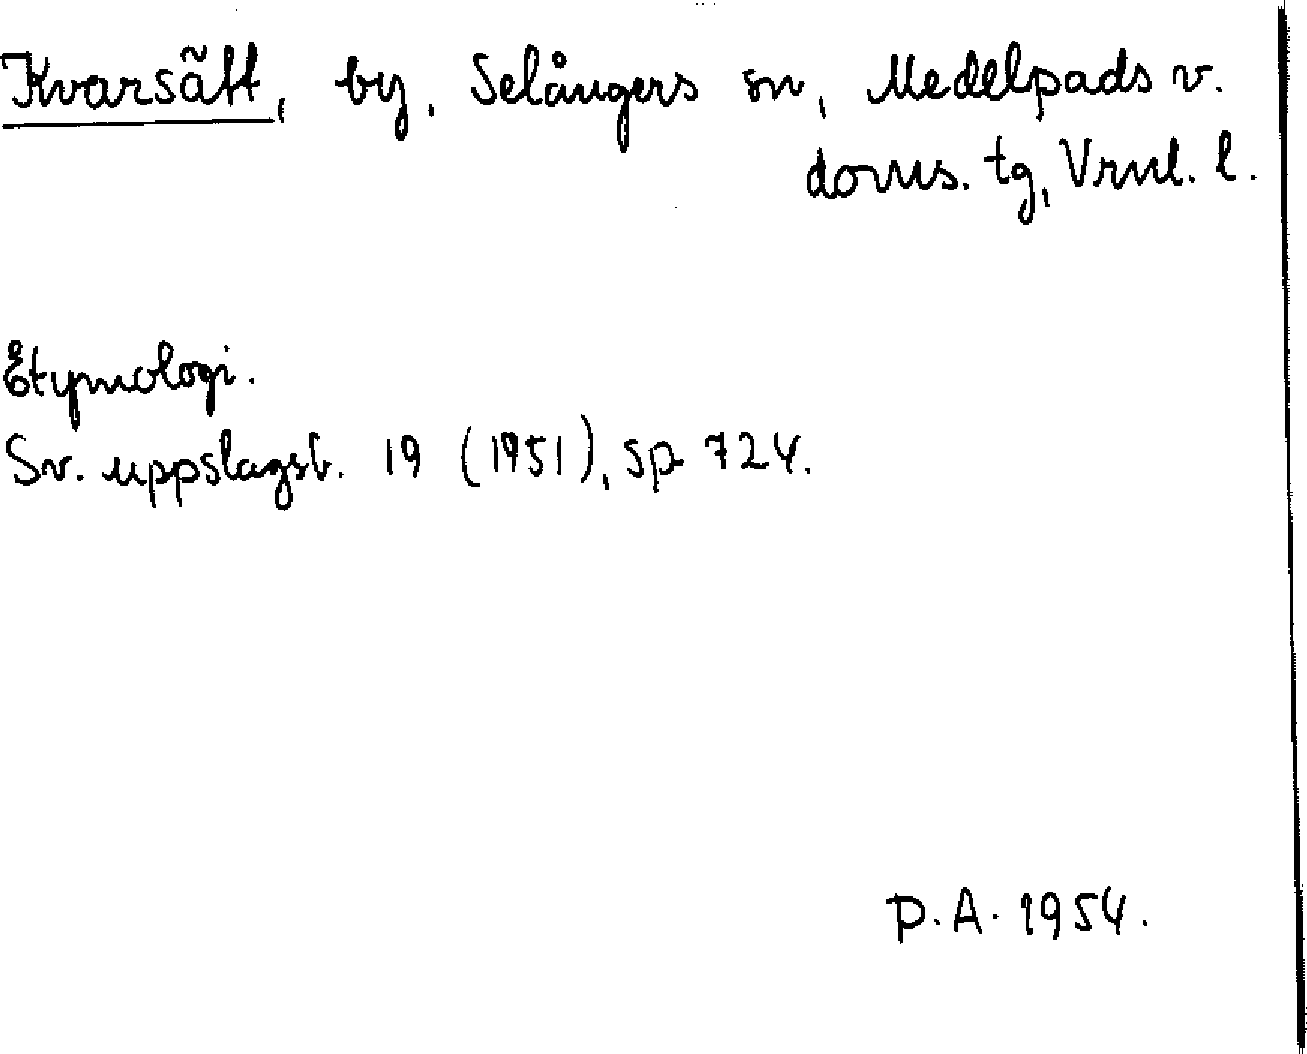 Kvarsätt, by, Selångers sn, Medelpads v.
doms. tg, Vrnl. l.
Etymologi.
Sv. uppslagsb. 19 (1951), sp 724.
P.A. 1954.